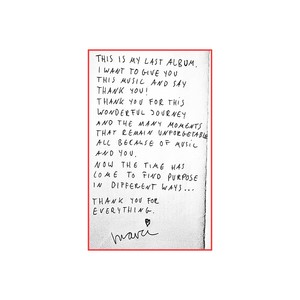 THIS IS MY LAST ALBUM.
I WANT TO GIVE YOU
THIS MUSIC AND SAY
THANK YOU!
THANK YOU FOR THIS
WONDERFUL JOURNEY
AND THE MANY MOMENTS
THAT REMAIN UNFORGETABLE
ALL BECAUSE OF MUSIC
AND YOU.
NOW THE TIME HAS
COME TO FIND PURPOSE
IN DIFFERENT WAYS...
THANK YOU FOR
EVERYTHING.